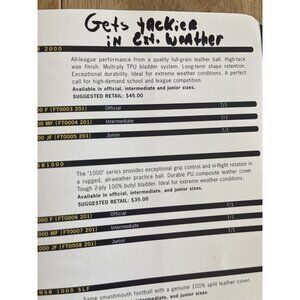 Gets tackier
in Ext. weather
B 2000
All-league performance from a quality full-grain leather ball. High-tack
wax finish. Multi-ply TPU bladder system. Long-term shape retention.
Exceptional durability. Ideal for extreme weather conditions. A perfect
call for high-demand school and league practice.
Available in official, intermediate and junior sizes.
SUGGESTED RETAIL: $45.00
00 F (FT0003 201) Official 7/1
00 MF (FT0004 201) Intermediate 7/1
00 JF (FT0005 201) Junior 7/1
SB1000
The '1000' series provides exceptional grip control and in-flight rotation in
a rugged, all-weather practice ball. Durable PU composite leather cover.
Tough 2-ply 100% butyl bladder. Ideal for extreme weather conditions.
Available in official, intermediate and junior sizes.
SUGGESTED RETAIL: $35.00
00 F (FT0006 201) Official 7/1
00 MF (FT0007 201) Intermediate 7/1
00 JF (FT0008 201) Junior 7/1
NSB 1000 SLF
Same smashmouth football with a genuine 100% split leather cover.
intermediate and junior sizes.